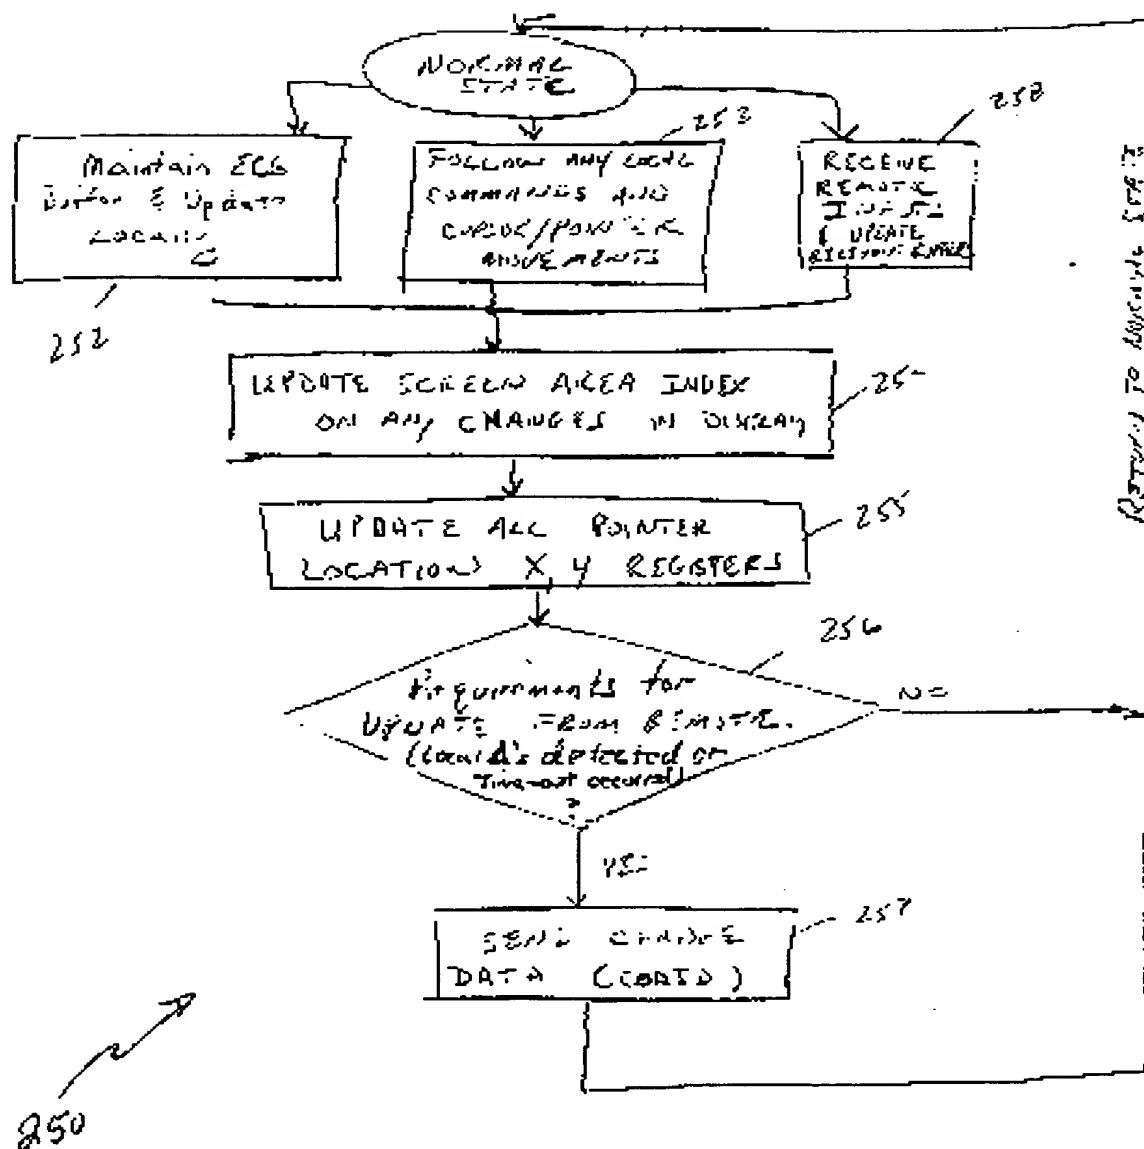 NORMAL
STATE
Maintain ECG
Buffer & Update
Locally
252
253
FOLLOW ANY LOCAL
COMMANDS AND
CURSOR/POINTER
MOVEMENTS
258
RECEIVE
REMOTE
INPUTS
UPDATE
RETURN TO NORMAL STATE
UPDATE SCREEN AREA INDEX
ON ANY CHANGES IN DISPLAY
UPDATE ALL POINTER
LOCATION X, Y REGISTERS
255
256
Requirements for
UPDATE FROM REMOTE.
(local Δ's detected or
Time-out occurred)
?
NO
YES
SEND CHANGE
DATA
257
250